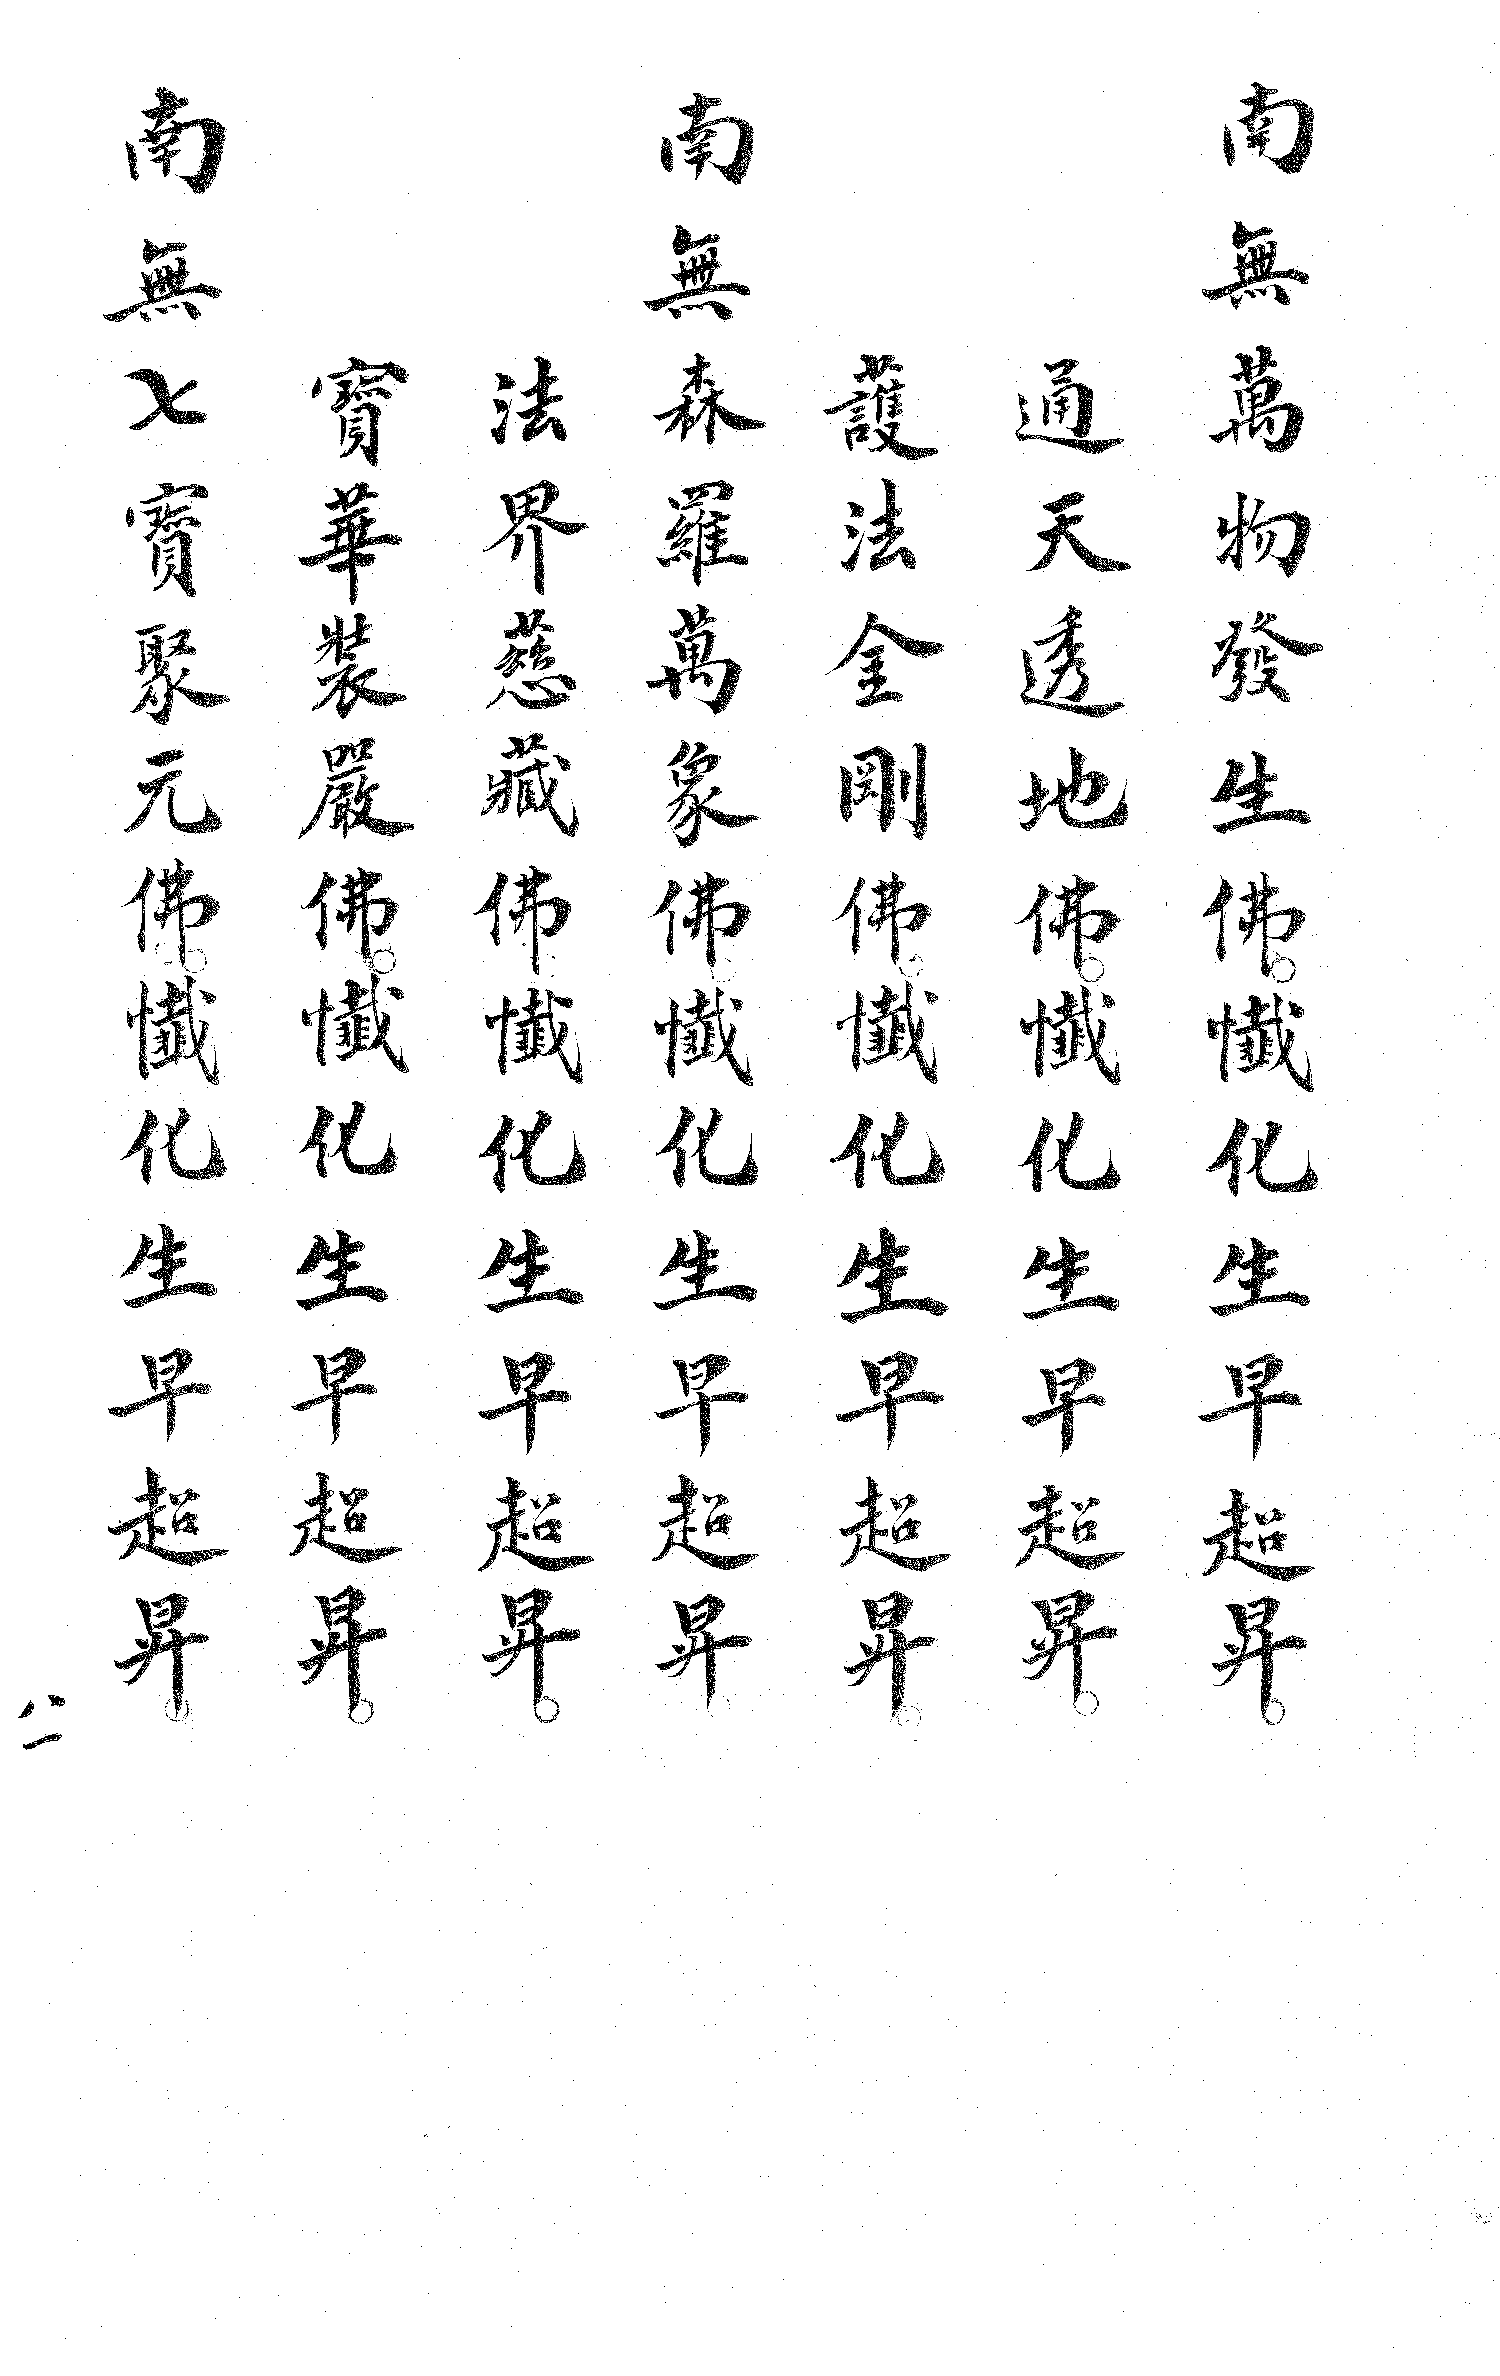 南無萬物發生佛。懺化生早超昇。
通天透地佛。懺化生早超昇。
護法金剛佛。懺化生早超昇。
南無森羅萬象佛。懺化生早超昇。
法界慈藏佛懺化生早超昇。
寶華裝嚴佛。懺化生早超昇。
南無七寶聚元佛。懺化生早超昇。
八一